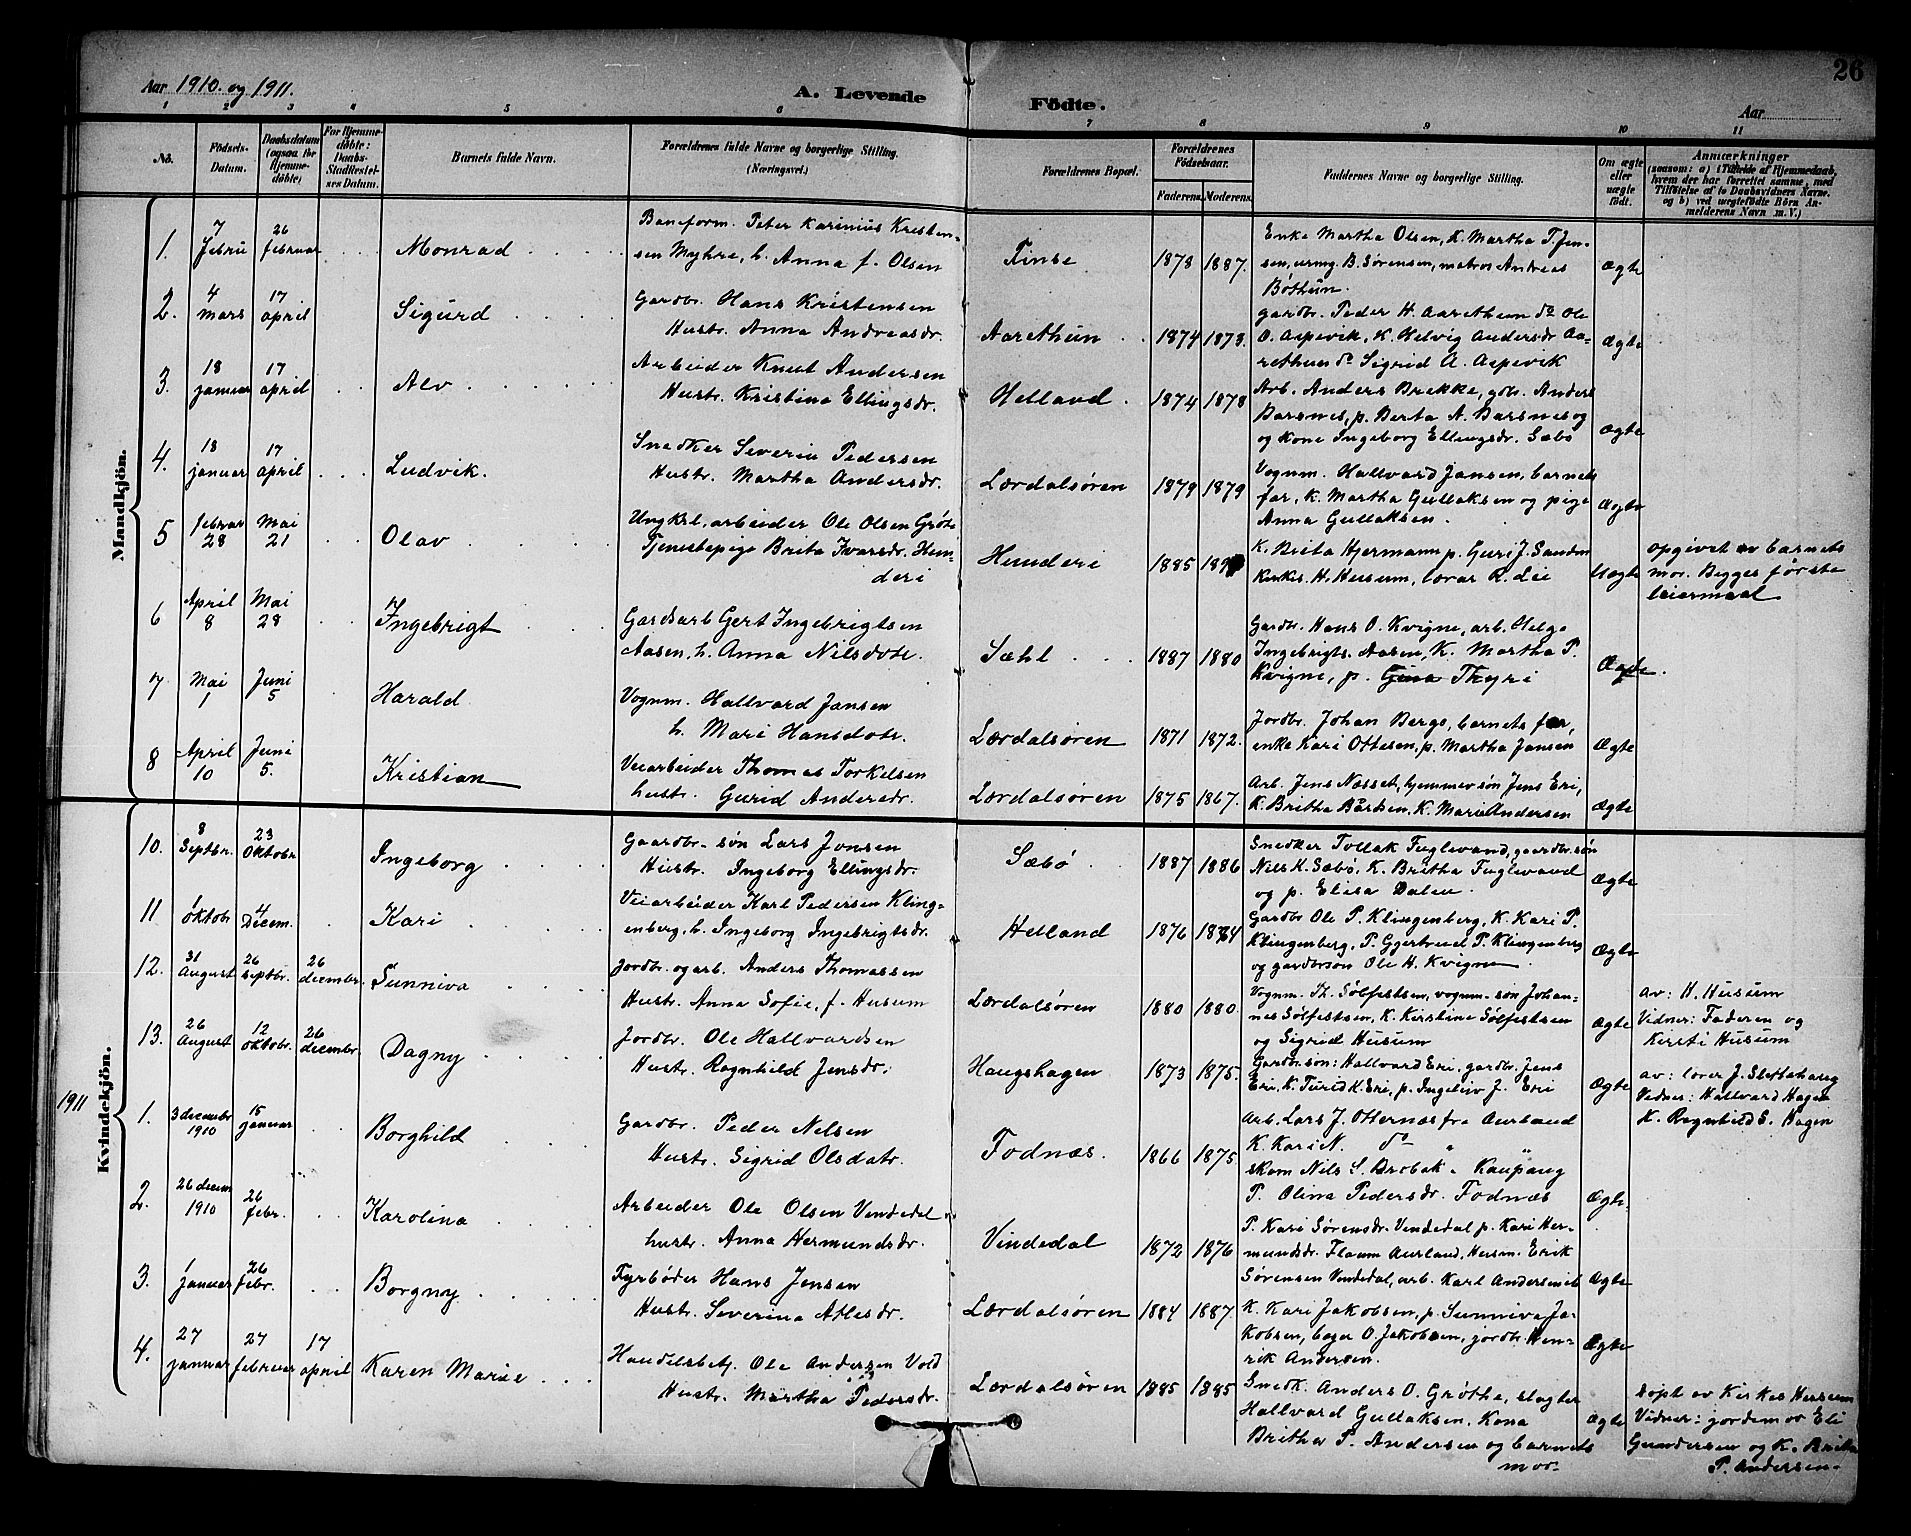 Aar 1910. og 1911.
A. Levende
Födte.
Aar
26
1 2 3 4 5 6 7 8 9 10 11
No.
Födsels-Datum.
Daabsdatum (ogsaa for Hjemme-döbte)
For Hjemme-döbte: Daabs-Stadfæstel-ses Datum.
Barnets fulde Navn.
Forældrenes fulde Navne og borgerlige Stilling. (Næringsvei.)
Forældrenes Bopæl.
Forældrenes Födselsaar.
Faderens. Moderens.
Faddernes Navne og borgerlige Stilling.
Om ægte eller uægte födt.
Anmærkninger
(saasom: a) i Tilfælde af Hjemmedaab, hvem der har forrettet samme, med Tilföielse af to Daabsvidners Navne. og b) ved uægtefödte Börn An-melderens Navn m. V.)
Mandkjön.
1. 7 Febru 26 februar Monrad
Baneform. Peter Karinius Kristen-
sen Myhre, h. Anna f. Olsen
Finse 1878 1887.
Enke Martha Olsen, K. Martha T. Jen-
sen, urmg. B. Sørensen, matros Andreas
Bøthun.
Ægte
2. 4 mars 17 april Sigurd
Gardbr. Hans Kristensen
Hustr. Anna Andreasdr.
Aarethun 1874 1873.
gardbr. Peder H. Aarethun do Ole
O. Aspevik, K. Helvig Andersdr Aa-
rethun do Sigrid A. Aspevik
Ægte
3. 18 januar 17 april Alv
Arbeider Knut Andersen
Hustr. Kristina Ellingsdr.
Helland. 1874 1878
Arb. Anders Brekke, gdb. Anders
Barsnes, p. Berta A. Barsnes og
og Kone Ingeborg Ellingsdr. Sæbö
Ægte
4. 18 januar 17 april Ludvik.
Snedker Severin Pedersen
Hustr. Martha Andersdr.
Lærdalsøren 1879 1879
Vognm. Hallvard Jansen, barnets
far, K. Martha Gullaksen og pige
Anna Gullaksen.
Ægte
5 februar 28 Mai 21 Olav
Ungkrl. arbeider Ole Olsen Grøte
Tjenestepige Brita Ivarsdr. Hun-
deri
Hunderi 1885
K. Brita Hjermann p. Guri J. Sandnn
Kirkes. H. Husum, lærar R. Lie
Uægte
opgivet av barnets
mor. Begges første
leiermaal
6 April 8 Mai 28 Ingebrigt
Gardsarb Gert Ingebrigtsen
Aasen, h. Anna Nilsdotr.
Sæhl 1887 1880
Gardbr. Hans O. Kvigne, arb. Helge
Ingebrigts. Aasen, K. Martha P.
Kvigne, p. Gina Thyri
Ægte.
7 Mai 1 Juni 5 Harald
Vognm. Hallvard Jansen
h. Mari Hansdotr.
Lærdalsøren 1871 1872.
Jordbr. Johan Bergs, barnets far,
enke Kari Ottesen, p. Martha Jansen
Ægte
8 April 10 Juni 5. Kristian
Veiarbeider Thomas Torkelsen
hustr. Gurid Andersdr.
Lærdalsøren 1875 1867.
Arb. Jens Næsset, hjemmev søn Jens Eri,
K. Britha Bårdsen, K. Mari Andersen
Ægte
Kvindekjön.
10. 8 Septbr. 23 Oktobr Ingeborg
Gaardbr. søn Lars Jonsen
Hustr. Ingeborg Ellingsdr.
Sæbö 1887 1886
Snedker Tollak Fuglevand, gaardbr. søn
Nils K. Sæbö, K. Britha Fuglevand
og p. Elisa Dalen.
Ægte
11 1 Oktobr 4 Decem. Kari
Veiarbeider Karl Pedersen Kling-
enberg, h. Ingeborg Ingebrigtsdr.
Helland 1876
Gardbr Ole P. Klingenberg, K. Kari P.
Klingenberg, P. Ggertrud P. Klingenberg
og gardbrsøn Ole H. Kvigne.
Ægte
12. 31 August 26 Septbr. 26 december. Sunniva
Jordbr. og arb. Anders Thomassen
Hustr. Anna Sofie, f. Husum
Lærdalsøren 1880 1880.
Vognm. Th. Sølfestsen, vognm.-søn Johan-
nes Sølfestsen, K. Kirstine Sølfestsen
og Sigrid Husum
Ægte
av: H. Husum
Vidner: Faderen og
Kersti Husum
13. 26 August 12 Oktobr. 26 decembr. Dagny
Jordbr. Ole Hallvardsen
Hustr. Ragnhild Jensdr.
Haugshagen 1873 1875.
Gardbr. søn: Hallvard Eri, gardbr. Jens
Eri, K. Turid K. Eri, p. Ingeliv J. Eri
Ægte
av: lærer J. Slettehaug
Vidner: Hallvard Hagen
K. Ragnhild S. Hagen
1911
1. 3 decembr 1910 15 januar Borghild
Gardbr. Peder Nelsen
Hustr. Sigrid Olsdatr.
Fodnæs. 1866 1875
Arb. Lars J. Otternæs fra Aurland
K. Kari N. do "
skom Nils S. Brobak " Kaupang
P. Olina Pedersdr. Fodnæs
Ægte.
2. 26 decem 1910 26 febr. Karolina
Arbeider Ole Olsen Vendedal
hustr. Anna Hermundsdr.
Vindedal 1872 1876
P. Kari Sørensdr. Vendedal p. Kari Her-
mundsdr. Flaum Aurland, Husm. Erik
Sørensen Vendedal, arb. Karl Andersen ib
Ægte
3. 1 januar 26 febr. Borgny
Fyrbøder Hans Jensen
Hustr. Severina Atlesdr.
Lærdalsøren 1884 1887.
K. Kari Jakobsen, p. Sunniva Ja-
kobsen, bager O. Jakobsen, jordbr. Hen-
rik Andersen.
Ægte
4. 27 januar 27 februar 17 april Karen Marie
Handelsbetj. Ole Andersen Vold
Hustr. Martha Pedersdr.
Lærdalsøren 1885 1885
Snedk. Anders O. Grøthe, slagter
Hallvard Gullaksen, Kona
Britha P. Andersen og barnets
mor.
Ægte
døpt av Kirkes Husum
Vidner: jordemor Eli
Gundersen og K. Britha
P. Andersen.